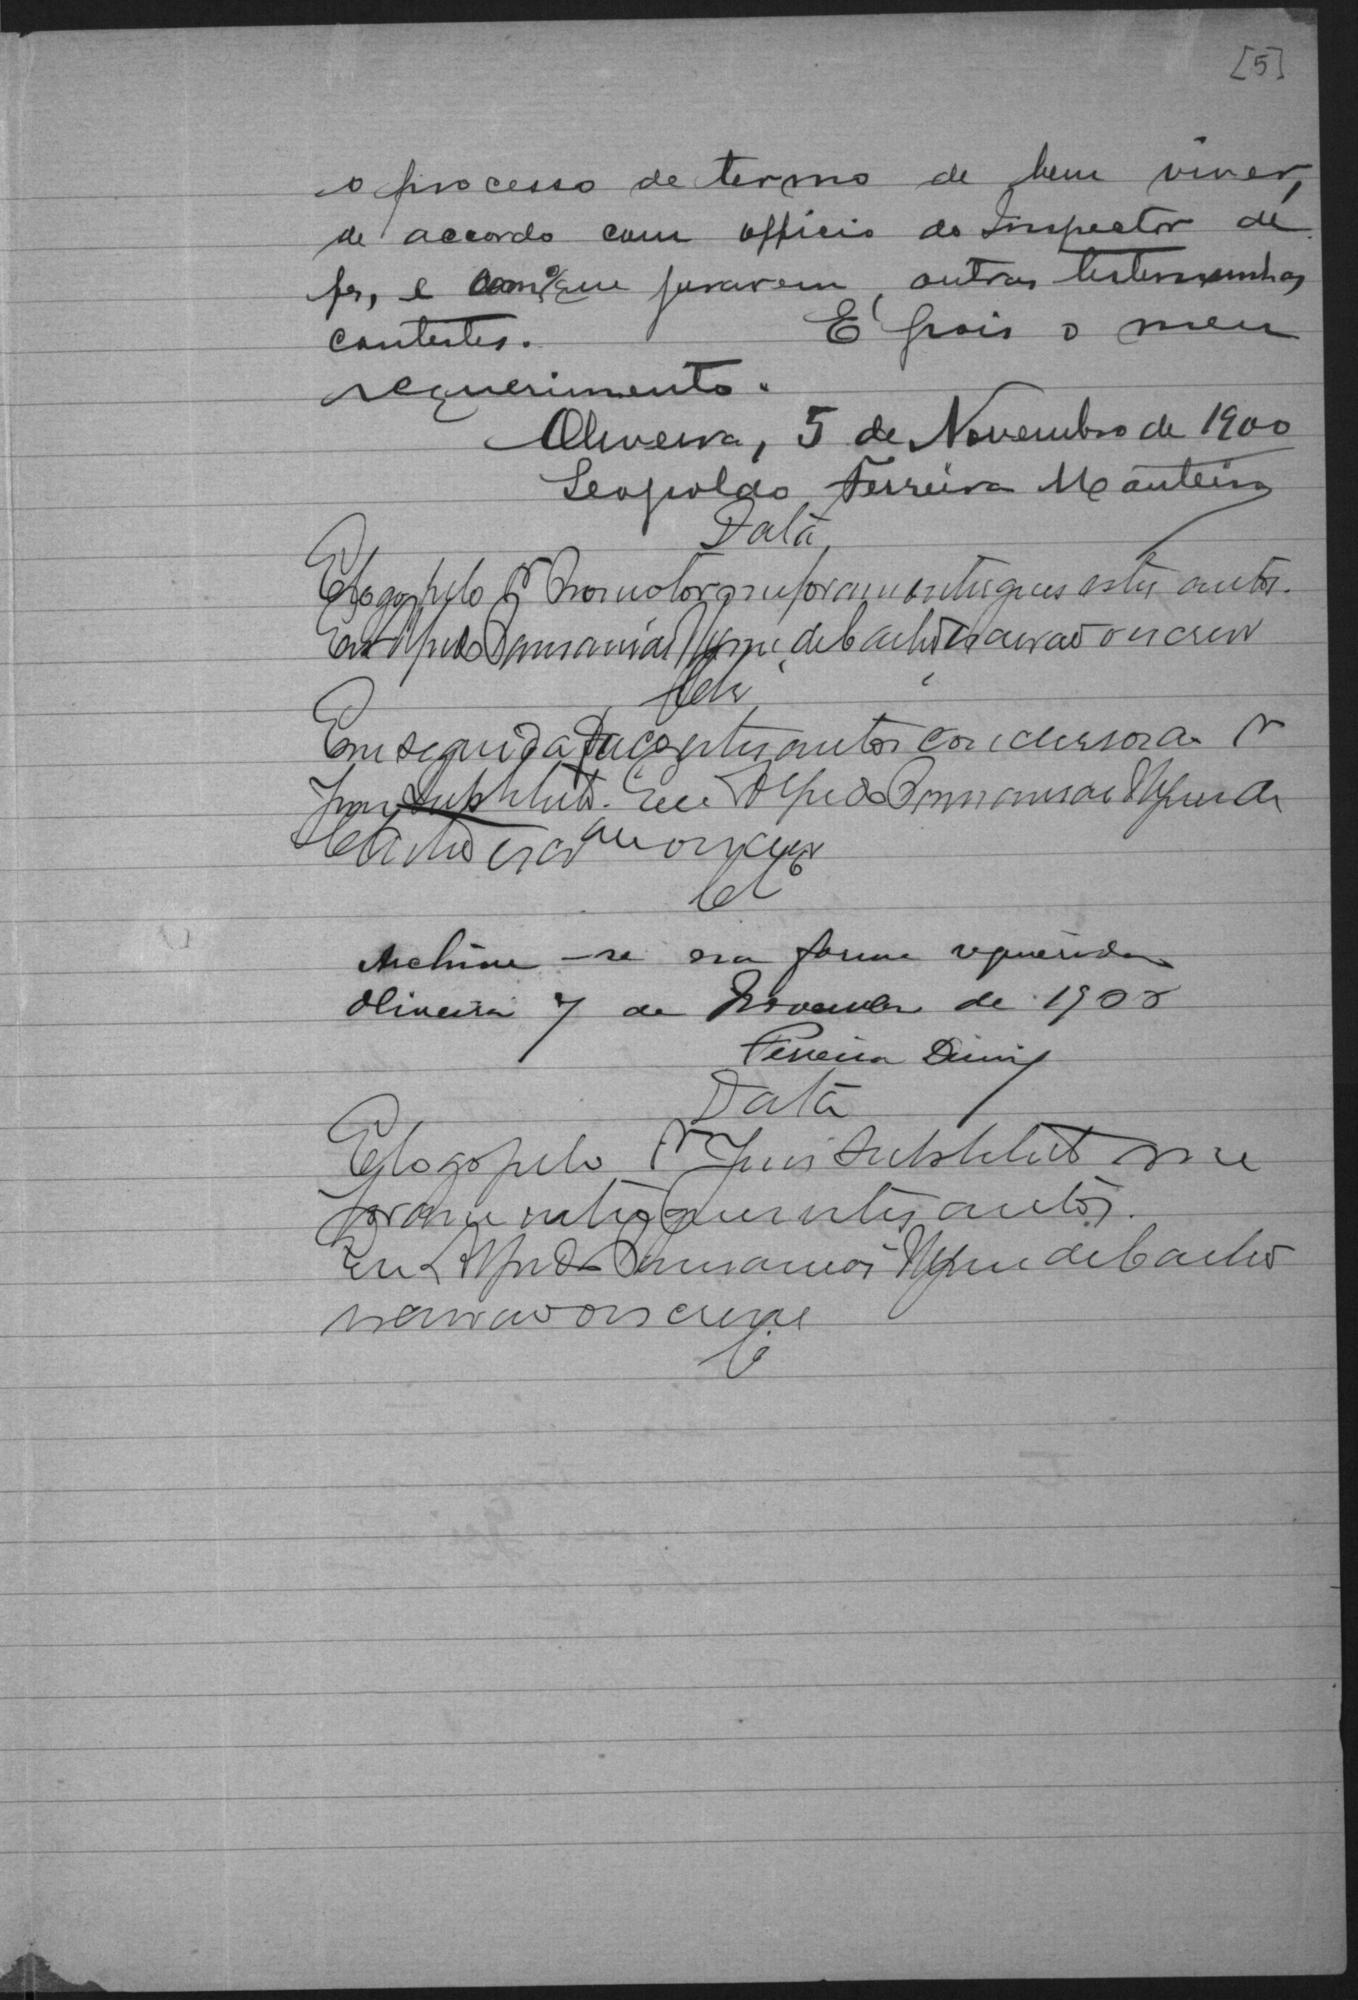 [5]
o processo de termo de bem viver,
de accordo com officio do Inspector de
fs, e com que jurarem, outras testemunhas
contestes. E' pois o meu
requerimento.
Oliveira, 5 de Novembro de 1900
Leopoldo Ferreira Monteiro
Data
E logo pelo Dr Promotor me foram entregues estes autos.
Eu Alfredo de Castro escrivão o escrevi
Cls
Em seguida faço estes autos conclusos ao Dr
Juiz Substituto. Eu Alfredo de
Castro escrivão o escrevi
Cls
Archive-se na forma requerida
Oliveira 7 de Novembro de 1900
Ferreira Diniz
Data
E logo pelo Dr Juiz Substituto me
foram entregues estes autos.
Eu Alfredo de Castro
escrivão o escrevi